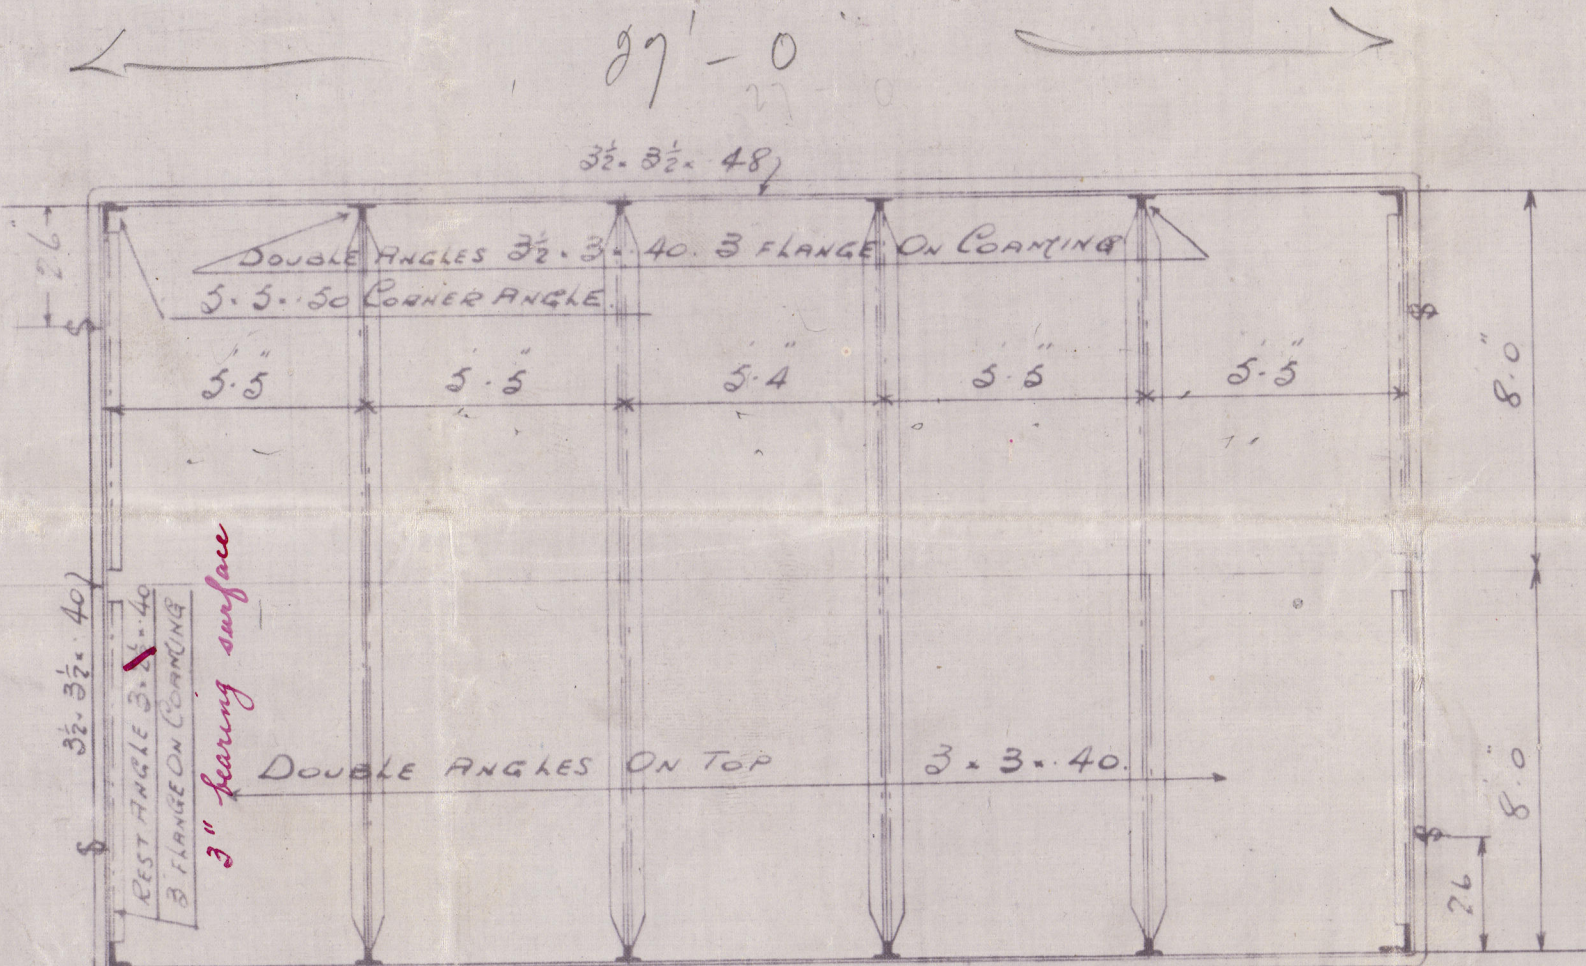 27' - 0"
27 - 0
3½ × 3½ × ·48
2'6"
DOUBLE ANGLES 3½ × 3 × ·40. 3 FLANGE ON COAMING
5 × 5 × ·50 CORNER ANGLE.
5'·5"
5'·5"
5'·4"
5'·5"
5'·5"
8'·0"
3½ × 3½ × ·40
REST ANGLE 3 × 2½ × ·40
3 FLANGE ON COAMING
3" bearing surface
DOUBLE ANGLES ON TOP 3 × 3 × ·40.
8'·0"
26